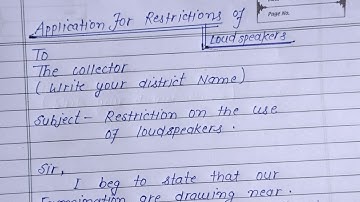 Page No.
Application for Restrictions of
Loudspeakers
To
The collector
(Write your district Name)
Subject - Restriction on the use
of loudspeakers.
Sir,
I beg to state that our
Examination are drawing near.